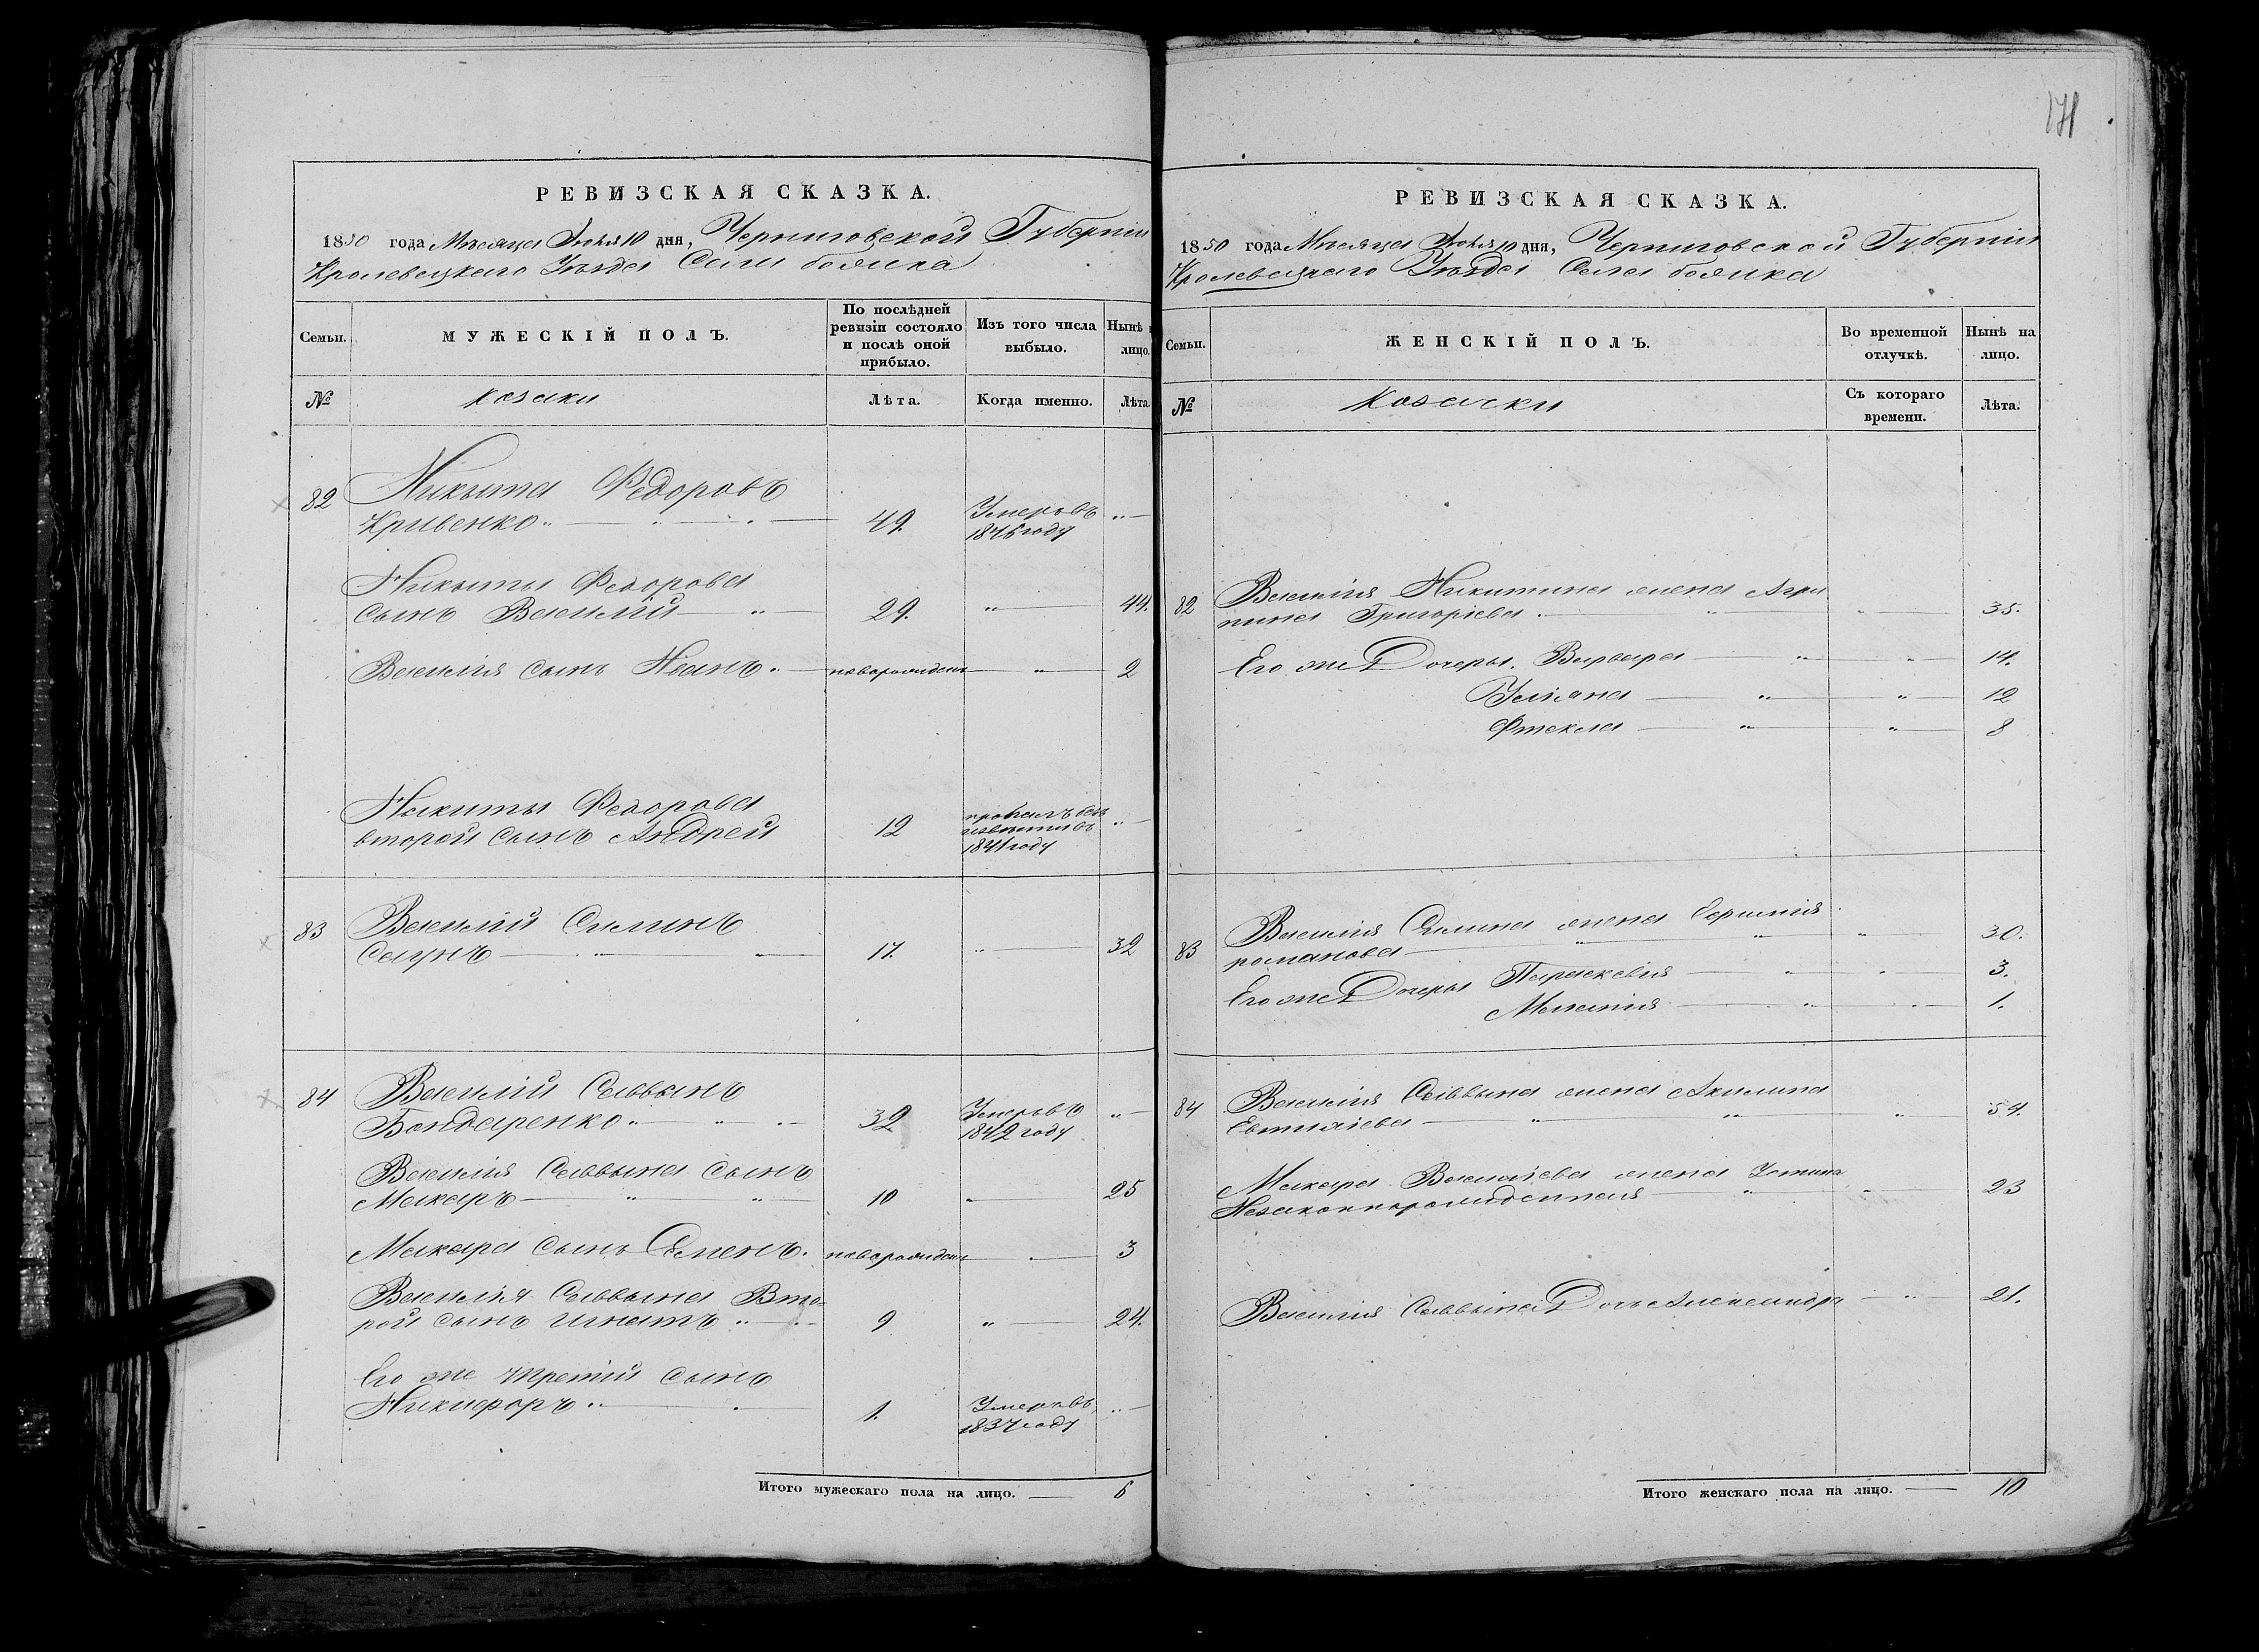 171
РЕВИЗСКАЯ СКАЗКА.
1850 года Месяца Июня 10 дня, Черниговской Губернiи
Кролевецкаго Уезда Села
Семьи.
МУЖЕСКIЙ ПОЛЪ.
По послѣдней ревизiи состояло и послѣ оной прибыло.
Изъ того числа выбыло.
Нынѣ
лицо.
№
козаки
Лѣта.
Когда именно.
Лѣта
82
Никита Федоровъ
Кривенко
49.
Умеръ въ
1846 году
Никиты Федорова
сынъ Василiй
29.
44.
Василiя сынъ Иванъ
новорожденъ
2
Никиты Федорова
второй сынъ Андрей
12
пропалъ безъ
1841 году
83
Василiй Силинъ
17.
32
84
Василiй Саввинъ
Бондаренко
32
Умеръ въ
1842 году
Василiя Саввина сынъ
Макаръ
10
25
Макара сынъ Семенъ
новорожденъ
3
Василiя Саввина Вто-
рой сынъ Игнатъ
9
24.
Его же третiй сынъ
Никифоръ
1.
Умеръ въ
1837 году
Итого мужескаго пола на лицо.
6
РЕВИЗСКАЯ СКАЗКА.
1850 года Месяца Июня 10 дня, Черниговской Губернiи
Кролевецкаго Уезда Села
Семьи.
ЖЕНСКIЙ ПОЛЪ.
Во временной отлучкѣ.
Нынѣ на лицо.
№
Козачки
Съ котораго времени.
Лѣта.
82
Василiя Никитина жена Агри
пина Григорiева
35.
Его же Дочеры. Варвара
14.
Улiяна
12
Фтекла
8
83
Василiя Силина жена
романова
30.
Его же Дочеры Параскевiя
3.
Меланiя
1.
84
Василiя Саввина жена Акилина
54.
Макара Василiева жена Устина
Незаконнорожденная
23
Василiя Саввина Дочь Александра
21.
Итого женскаго пола на лицо.
10